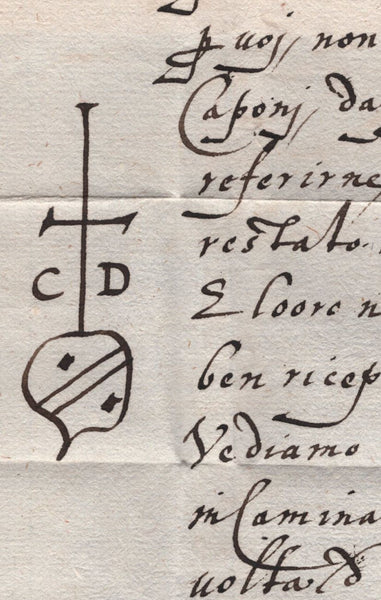 ꝑ uoj, non
Caponj, da
referirne
C D
restato
E looro n
ben ricep
Vediamo
in Camina
uolta